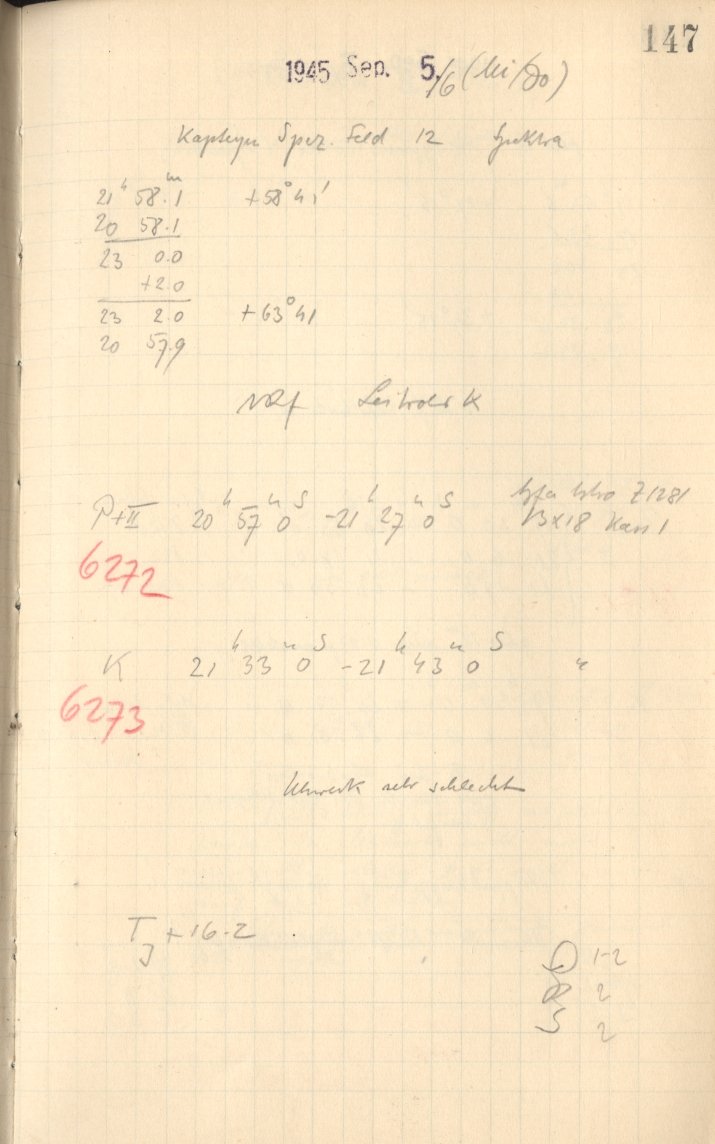 147
1945 Sep. 5./6 (Mi/Do)
Kapteyn Spez. Feld 12 Spektra
21ʰ 58.1ᵐ +58° 41'
20 58.1
23 0.0
+2.0
23 2.0 +63° 41
20 57.9
Leitrohr K
P+II 20ʰ 57ᵐ 0ˢ -21ʰ 27ᵐ 0ˢ Agfa Astro Z1281
13x18 Kass 1
6272
K 21ʰ 33ᵐ 0ˢ -21ʰ 43ᵐ 0ˢ "
6273
Uhrwerk sehr schlecht
T_J +16.2
D 1-2
R 2
S 2